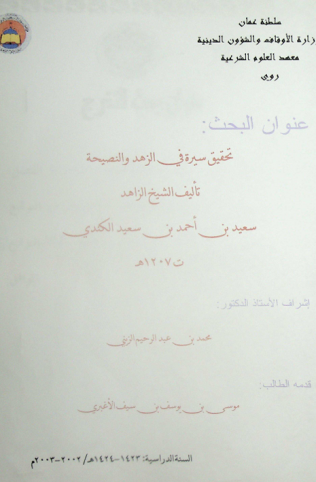 سلطنة عمان
وزارة الأوقاف والشؤون الدينية
معهد العلوم الشرعية
روي
عنوان البحث:
تحقيق سيرة في الزهد والنصيحة
تأليف الشيخ الزاهد
سعيد بن أحمد بن سعيد الكندي
ت ١٢٠٧هـ
إشراف الأستاذ الدكتور:
محمد بن عبد الرحيم الزيني
قدمه الطالب:
موسى بن يوسف بن سيف الأغبري
السنة الدراسية: ١٤٢٣-١٤٢٤هـ/ ٢٠٠٢-٢٠٠٣م